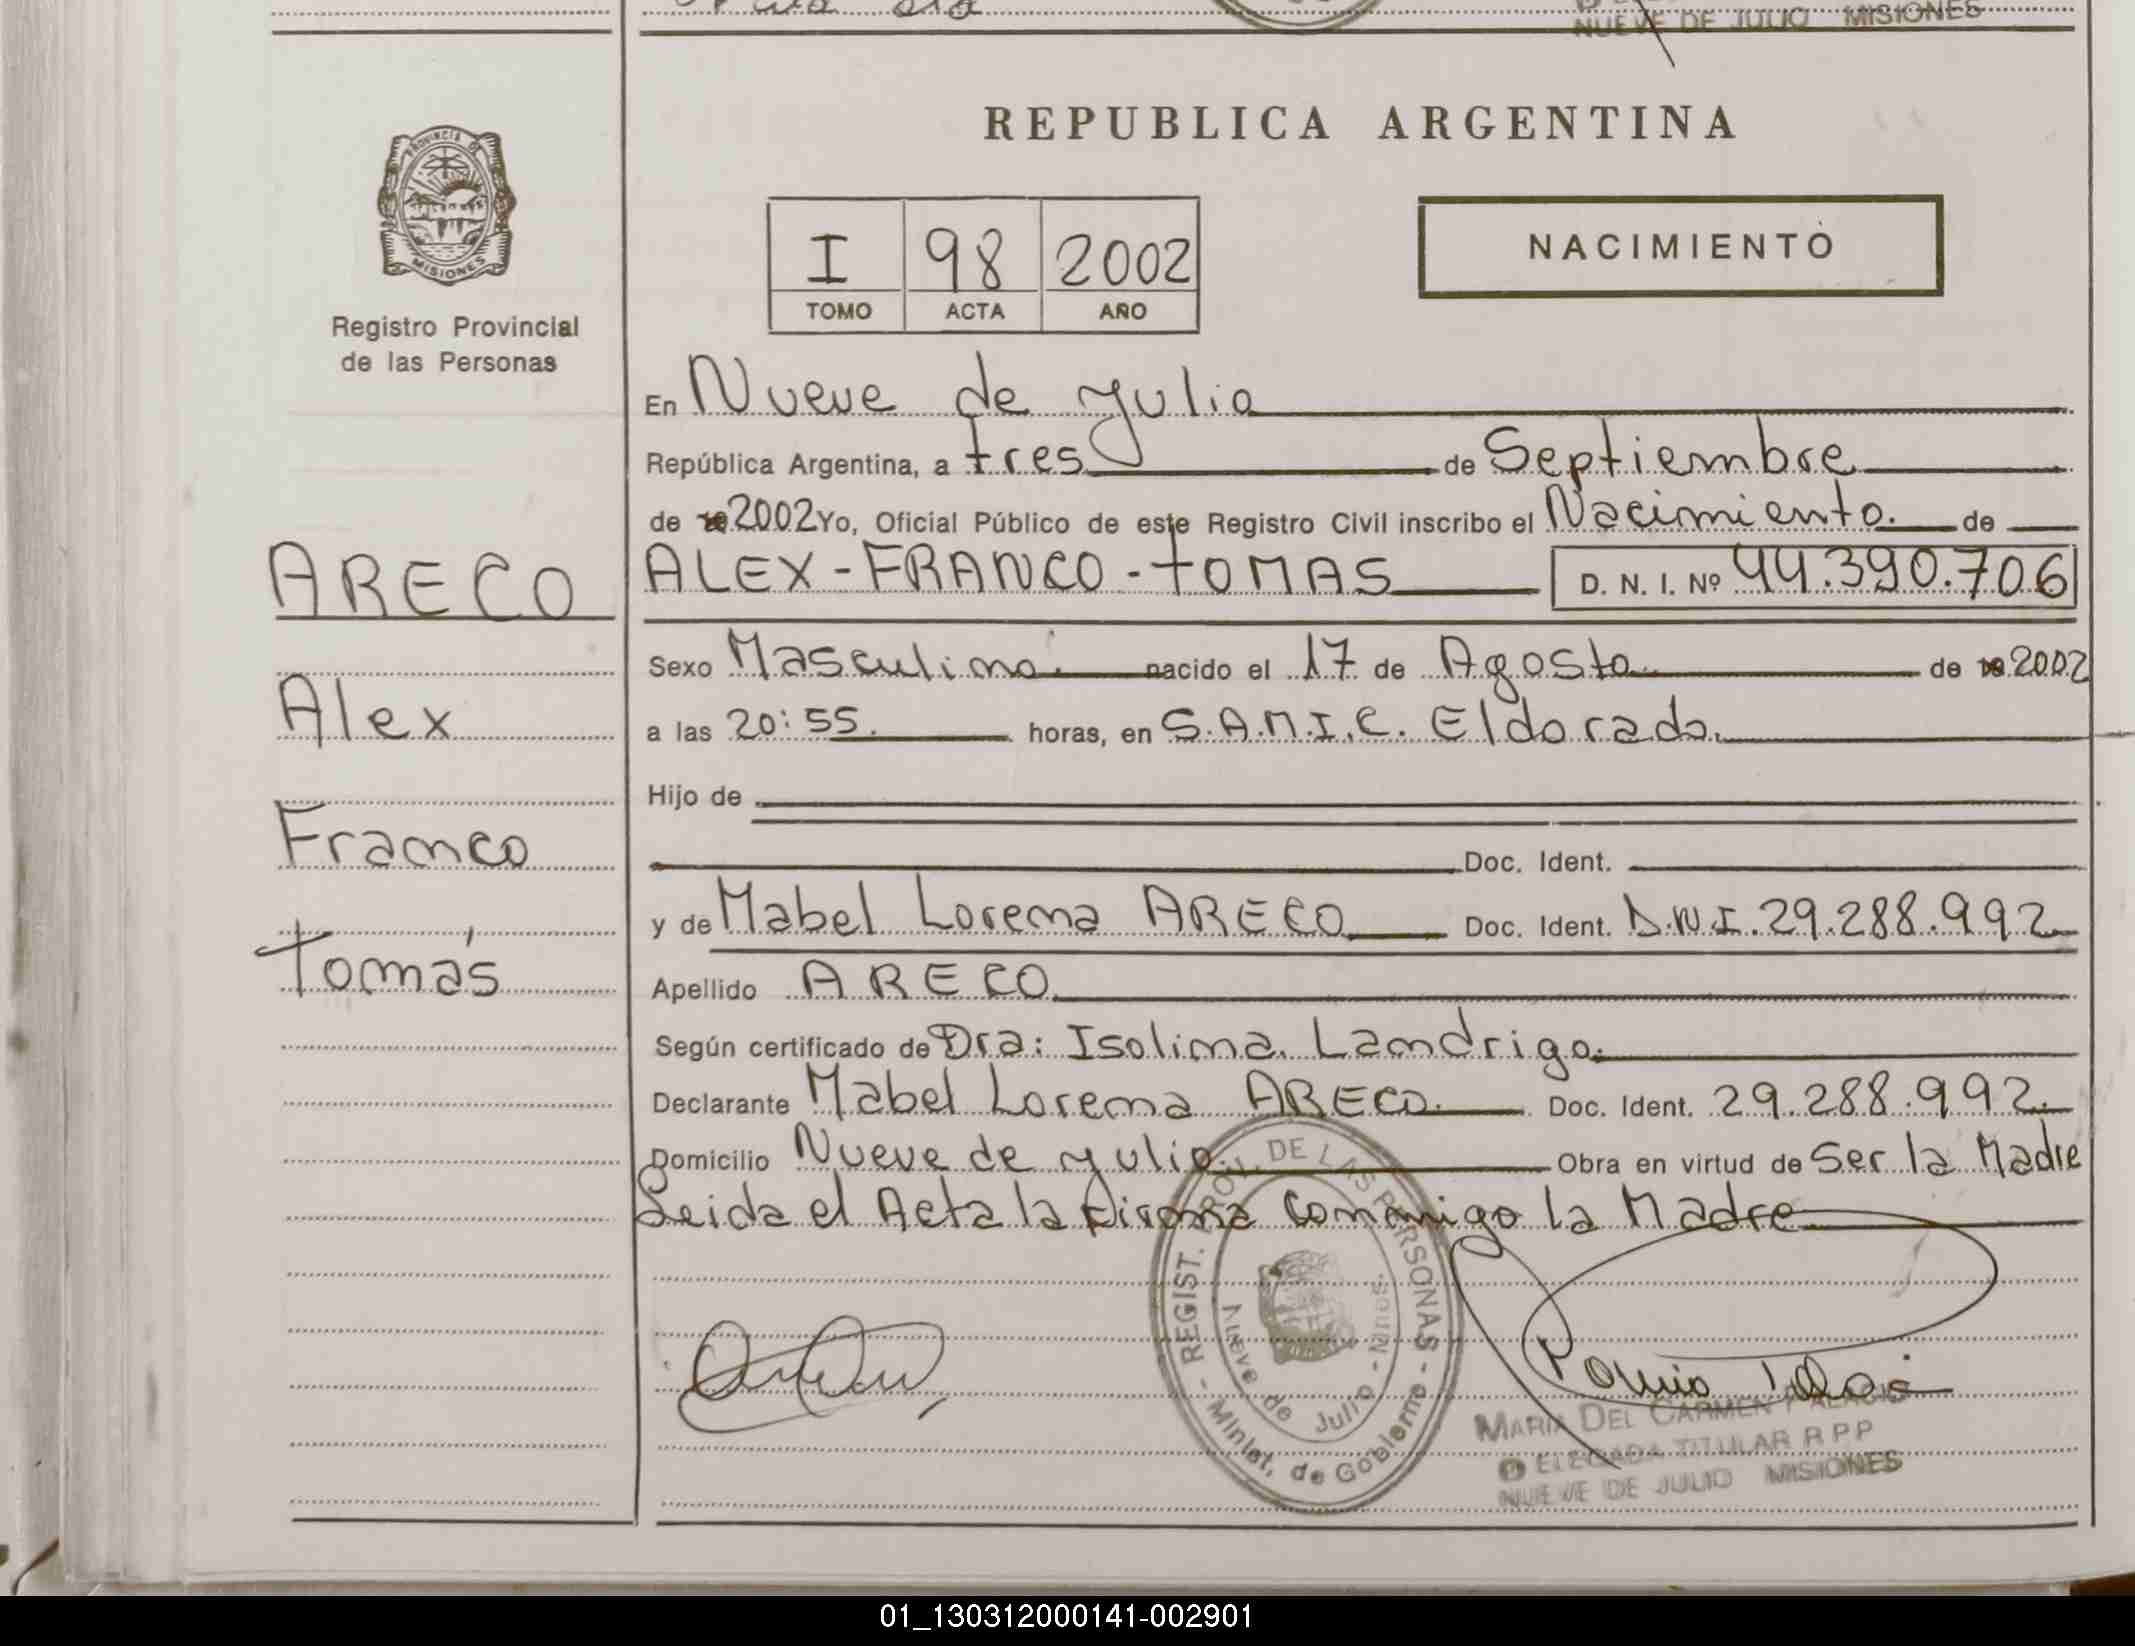 NUEVE DE JULIO MISIONES
REPUBLICA ARGENTINA
PROVINCIA DE
MISIONES
Registro Provincial
de las Personas
I 98 2002
TOMO ACTA AÑO
NACIMIENTO
En Nueve de Julio
República Argentina, a tres de Septiembre
de 2002 Yo, Oficial Público de este Registro Civil inscribo el Nacimiento. de
ARECO
Alex
Franco
Tomás
ALEX-FRANCO-TOMAS D. N. I. Nº 44.390.706
Sexo Masculino. nacido el 17 de Agosto de 2002
a las 20:55. horas, en S.A.M.I.C. Eldorado.
Hijo de
Doc. Ident.
y de Mabel Lorena ARECO Doc. Ident. D.N.I. 29.288.992
Apellido ARECO
Según certificado de Dra: Isolina Landrigo.
Declarante Mabel Lorena ARECO. Doc. Ident. 29.288.992.
Domicilio Nueve de Julio. Obra en virtud de Ser la Madre
Leida el Acta la firma conmigo la Madre
REGIST. PROV. DE LAS PERSONAS - Minist. de Gobierno -
Nueve de Julio - Mnes.
MARIA DEL CARMEN PALACIO
DELEGADA TITULAR R P P
NUEVE DE JULIO MISIONES
01_130312000141-002901